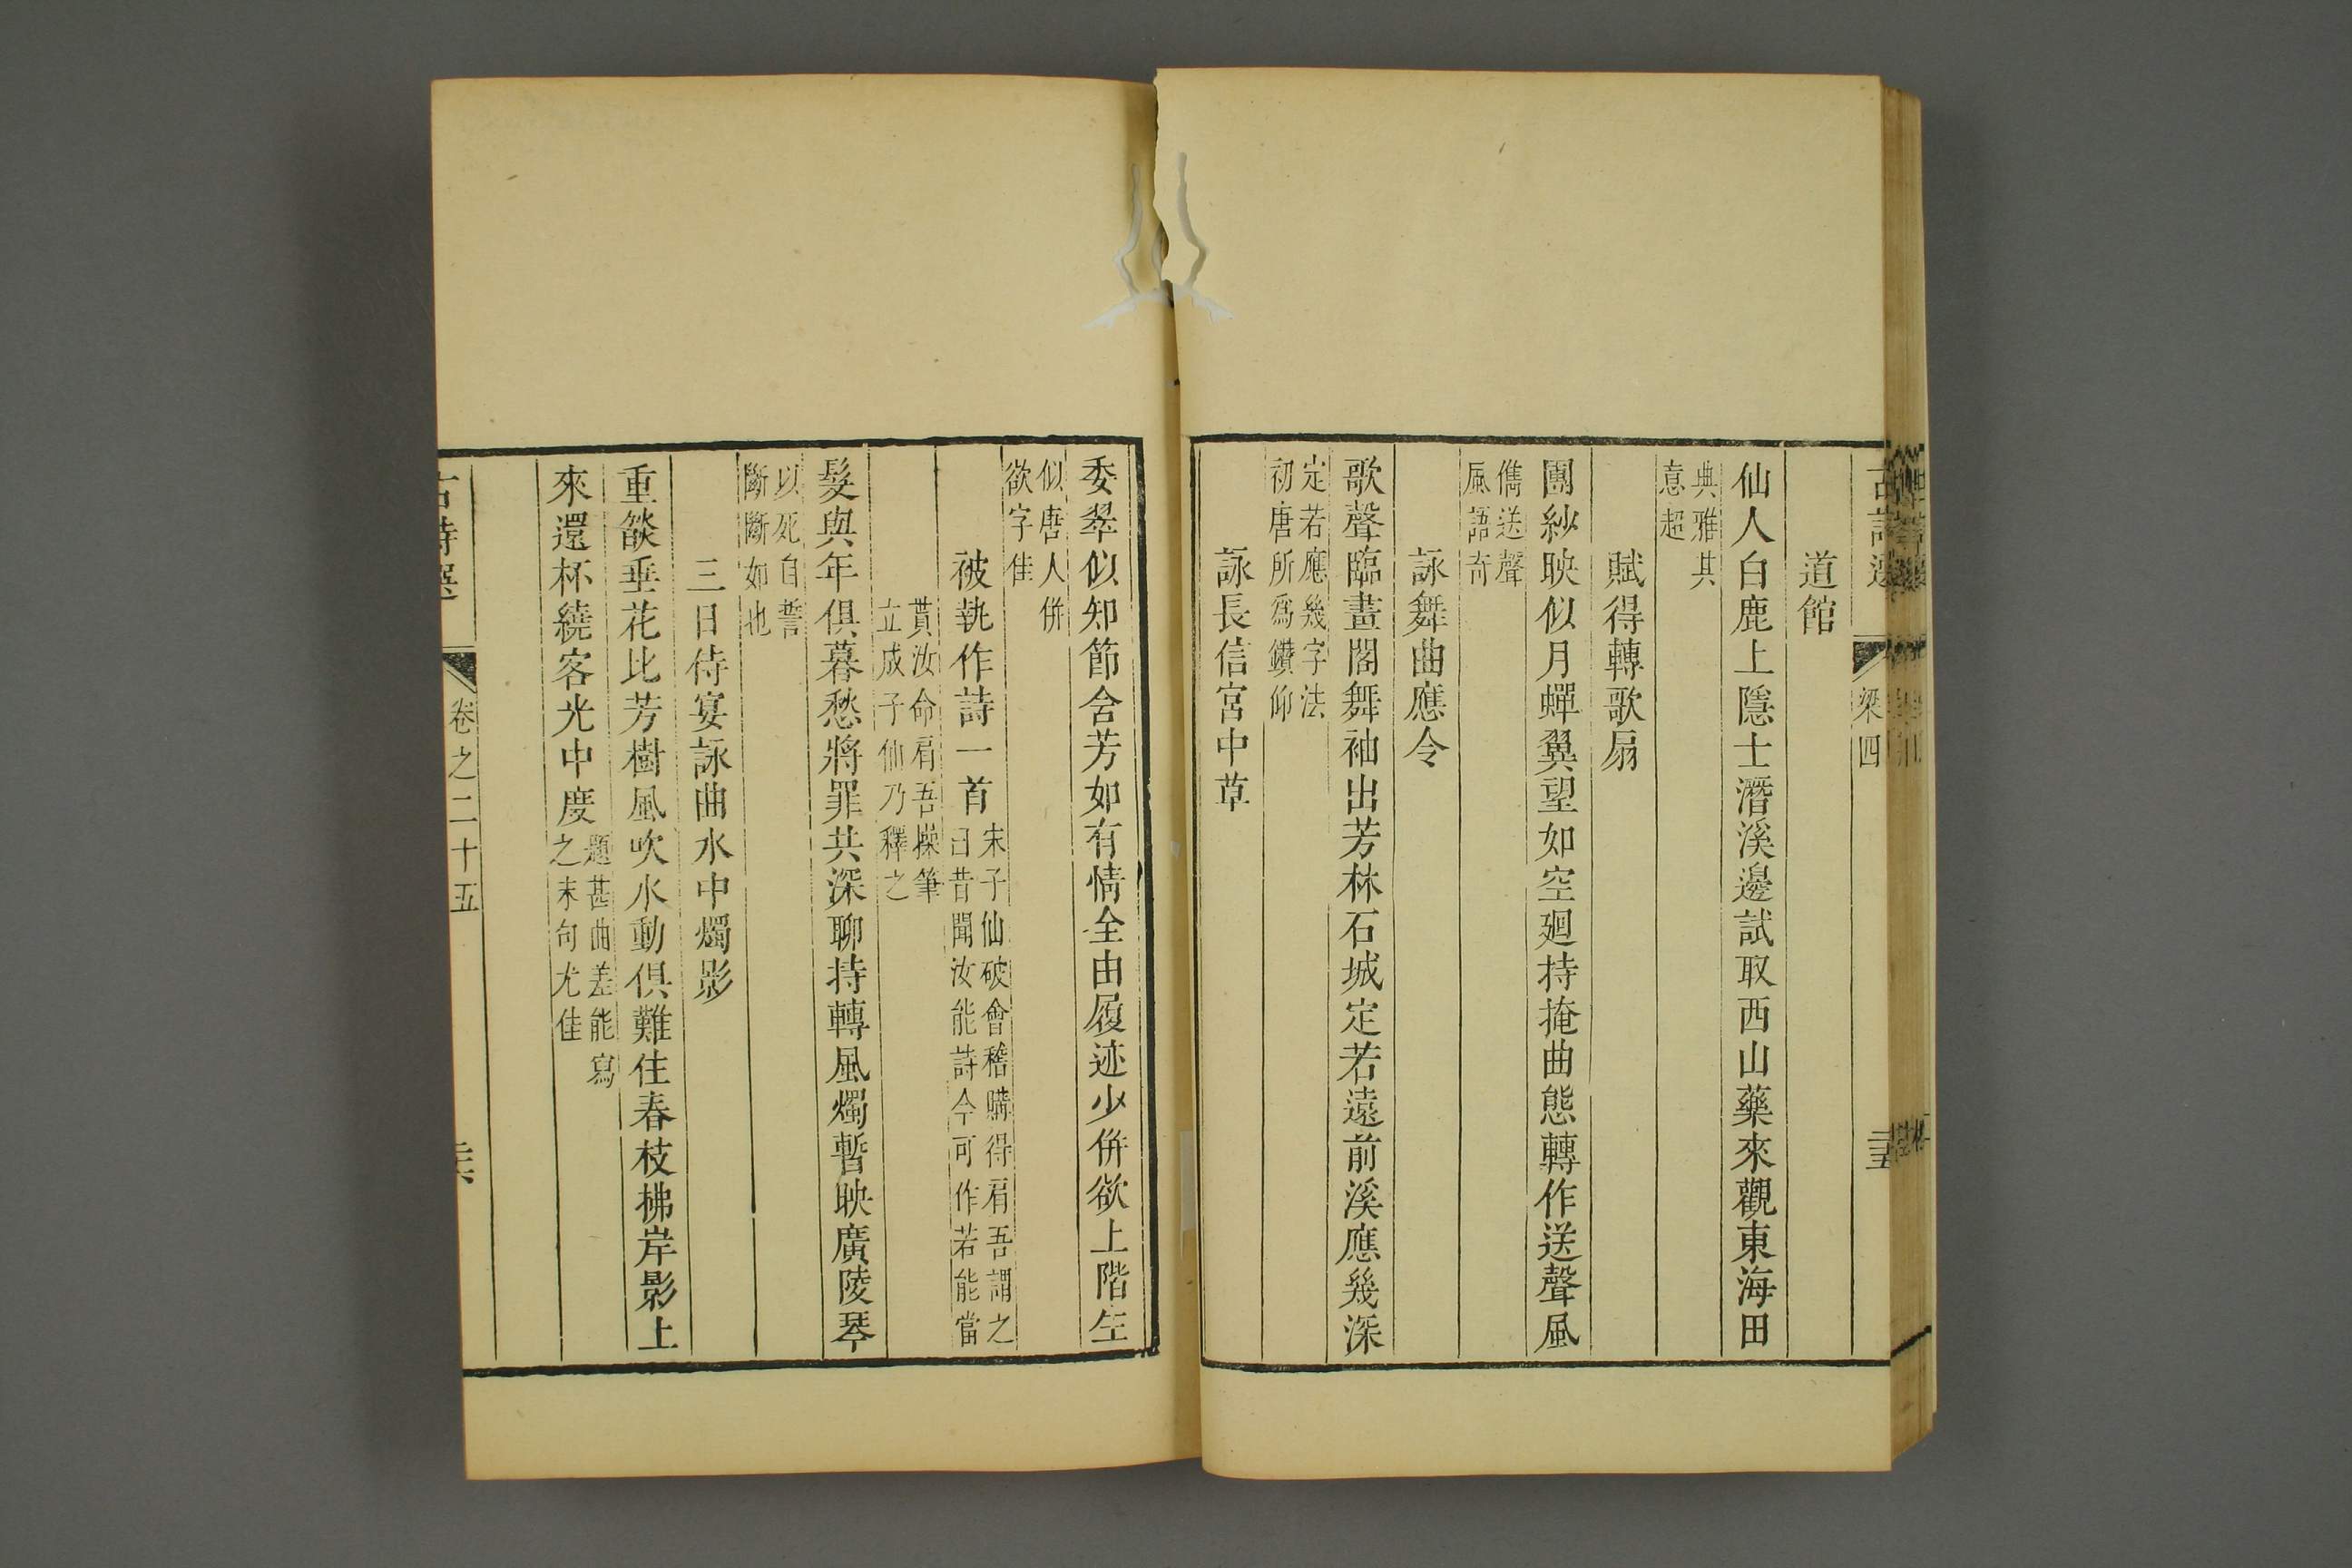 古詩選
梁四
道館
仙人白鹿上隱士潛溪邊試取西山藥來觀東海田
典雅其
意超
賦得轉歌扇
團紗映似月蟬翼望如空廻持掩曲態轉作送聲風
儁送聲
風語奇
詠舞曲應令
歌聲臨畫閣舞袖出芳林石城定若遠前溪應幾深
定若應幾字法
初唐所爲鑽仰
詠長信宮中草
委翠似知節含芳如有情全由履迹少併欲上階生
似唐人併
欲字佳
被執作詩一首
宋子仙破會稽購得肩吾謂之
曰昔聞汝能詩今可作若能當
貰汝命肩吾操筆
立成子仙乃釋之
髮與年俱暮愁將罪共深聊持轉風燭暫映廣陵琴
以死自誓
斷斷如也
三日侍宴詠曲水中燭影
重燄垂花比芳樹風吹水動俱難住春枝拂岸影上
來還杯繞客光中度
題甚曲差能寫
之末句尤佳
古詩選
卷之二十五